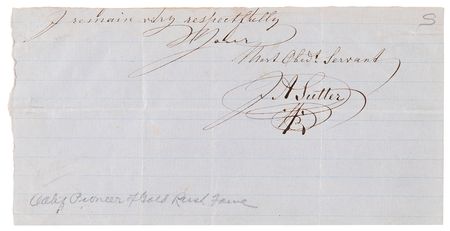 S
I remain very respectfully
Your
Most Obedt. Servant
J A Sutter
Calif Pioneer of Gold Rush Fame